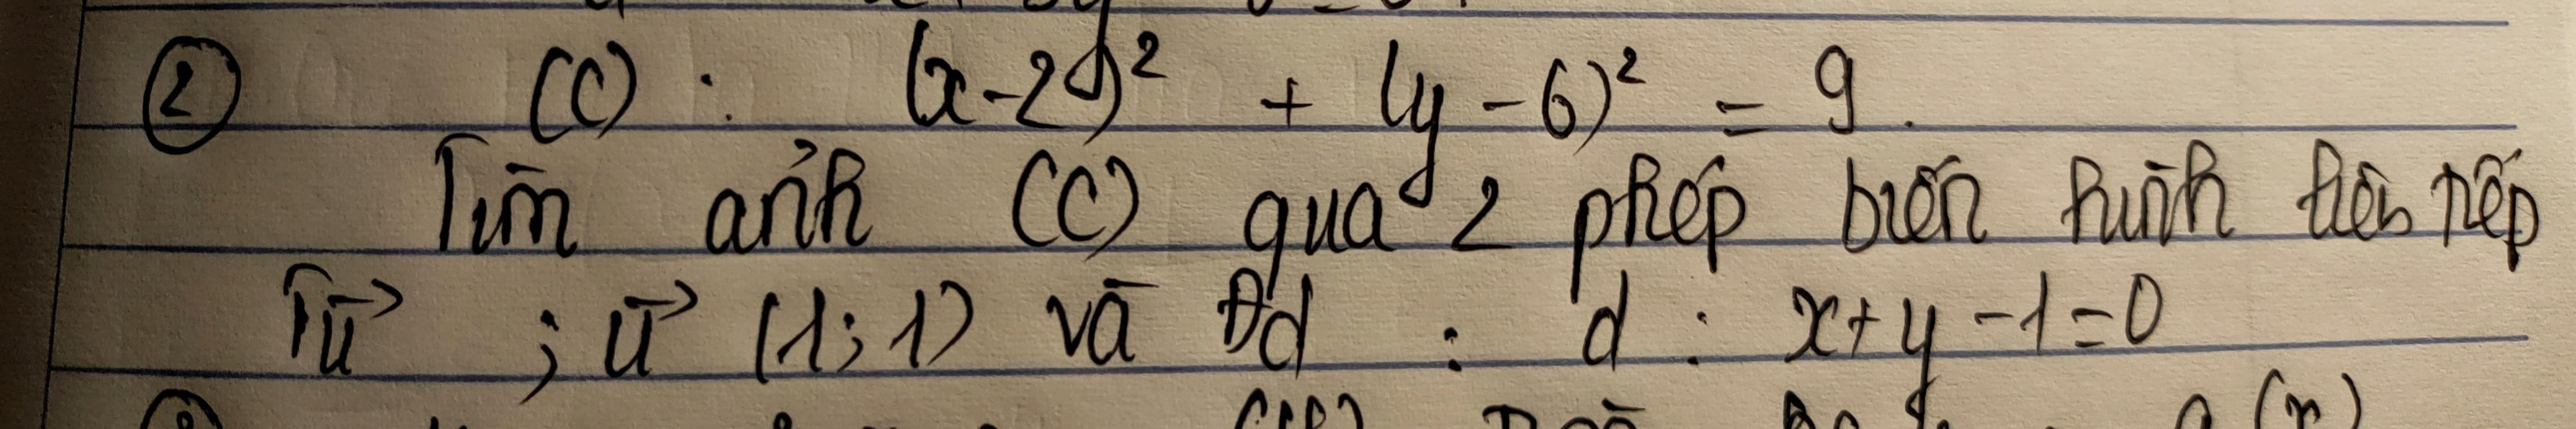 ② (C) : (x-2)² + (y-6)² = 9.
Tìm ảnh (C) qua 2 phép biến hình liên tiếp
Tu⃗ ; u⃗ (1; 1) và Đd : d : x+y-1=0